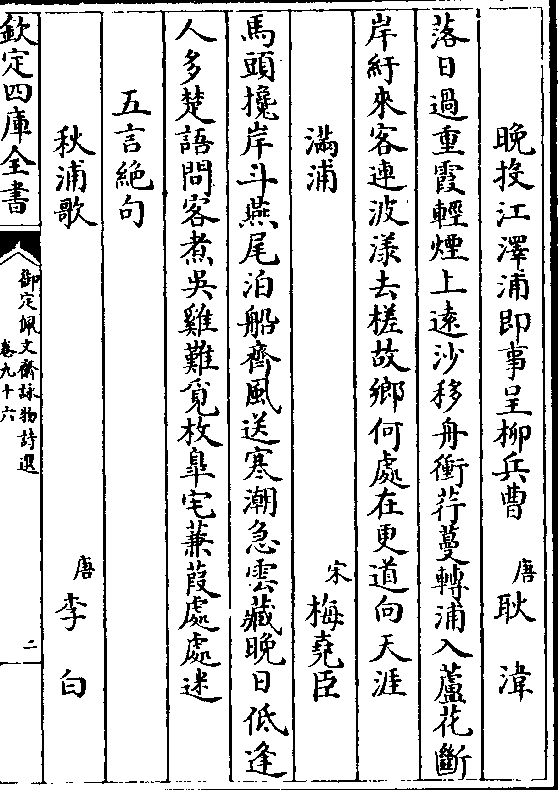 晚投江澤浦即事呈柳兵曹　唐　耿湋
落日過重霞輕煙上遠沙移舟衝荇蔓轉浦入蘆花斷
岸紆來客連波漾去槎故鄉何處在更道向天涯
滿浦　宋　梅堯臣
馬頭攙岸斗燕尾泊船齊風送寒潮急雲藏晚日低逢
人多楚語問客煮吳雞難覓枚臯宅蒹葭處處迷
五言絶句
秋浦歌　唐　李白
欽定四庫全書
御定佩文齋詠物詩選
卷九十六
二